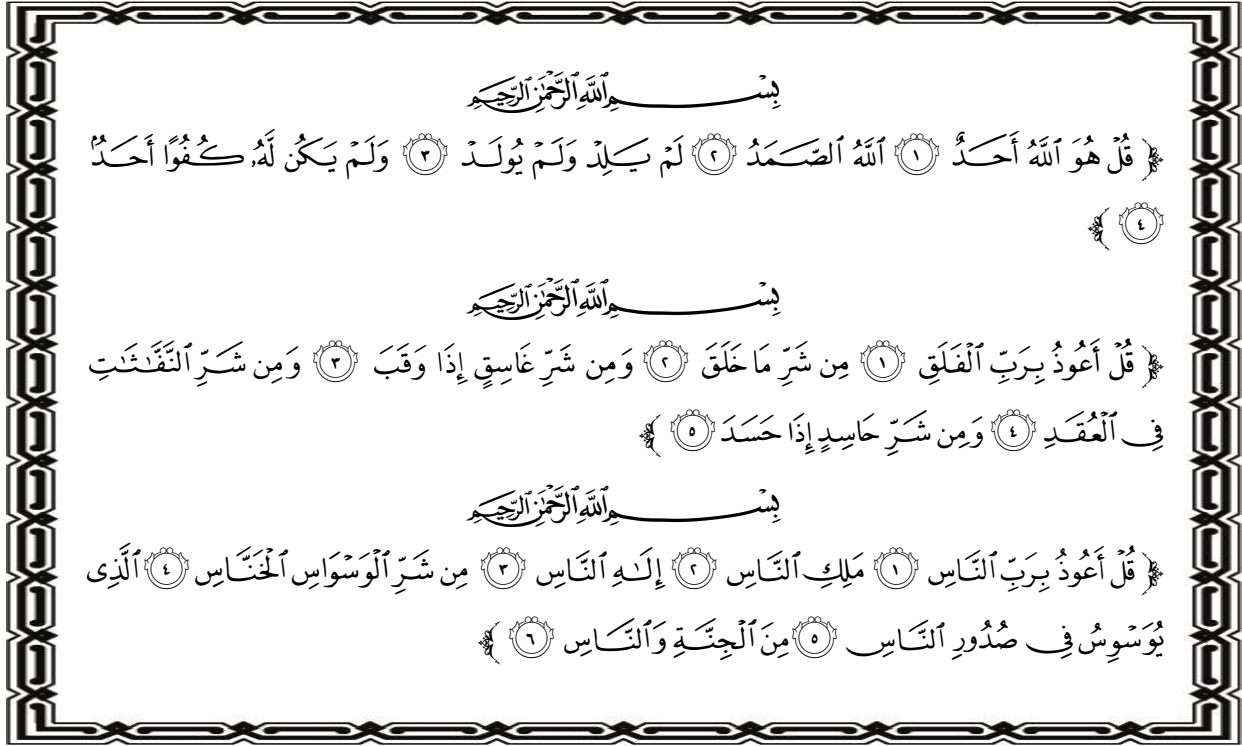 بِسْمِ ٱللَّهِ ٱلرَّحْمَٰنِ ٱلرَّحِيمِ
﴿ قُلْ هُوَ ٱللَّهُ أَحَدٌ ١ ٱللَّهُ ٱلصَّمَدُ ٢ لَمْ يَلِدْ وَلَمْ يُولَدْ ٣ وَلَمْ يَكُن لَّهُۥ كُفُوًا أَحَدٌۢ
٤ ﴾
بِسْمِ ٱللَّهِ ٱلرَّحْمَٰنِ ٱلرَّحِيمِ
﴿ قُلْ أَعُوذُ بِرَبِّ ٱلْفَلَقِ ١ مِن شَرِّ مَا خَلَقَ ٢ وَمِن شَرِّ غَاسِقٍ إِذَا وَقَبَ ٣ وَمِن شَرِّ ٱلنَّفَّٰثَٰتِ
فِى ٱلْعُقَدِ ٤ وَمِن شَرِّ حَاسِدٍ إِذَا حَسَدَ ٥ ﴾
بِسْمِ ٱللَّهِ ٱلرَّحْمَٰنِ ٱلرَّحِيمِ
﴿ قُلْ أَعُوذُ بِرَبِّ ٱلنَّاسِ ١ مَلِكِ ٱلنَّاسِ ٢ إِلَٰهِ ٱلنَّاسِ ٣ مِن شَرِّ ٱلْوَسْوَاسِ ٱلْخَنَّاسِ ٤ ٱلَّذِى
يُوَسْوِسُ فِى صُدُورِ ٱلنَّاسِ ٥ مِنَ ٱلْجِنَّةِ وَٱلنَّاسِ ٦ ﴾